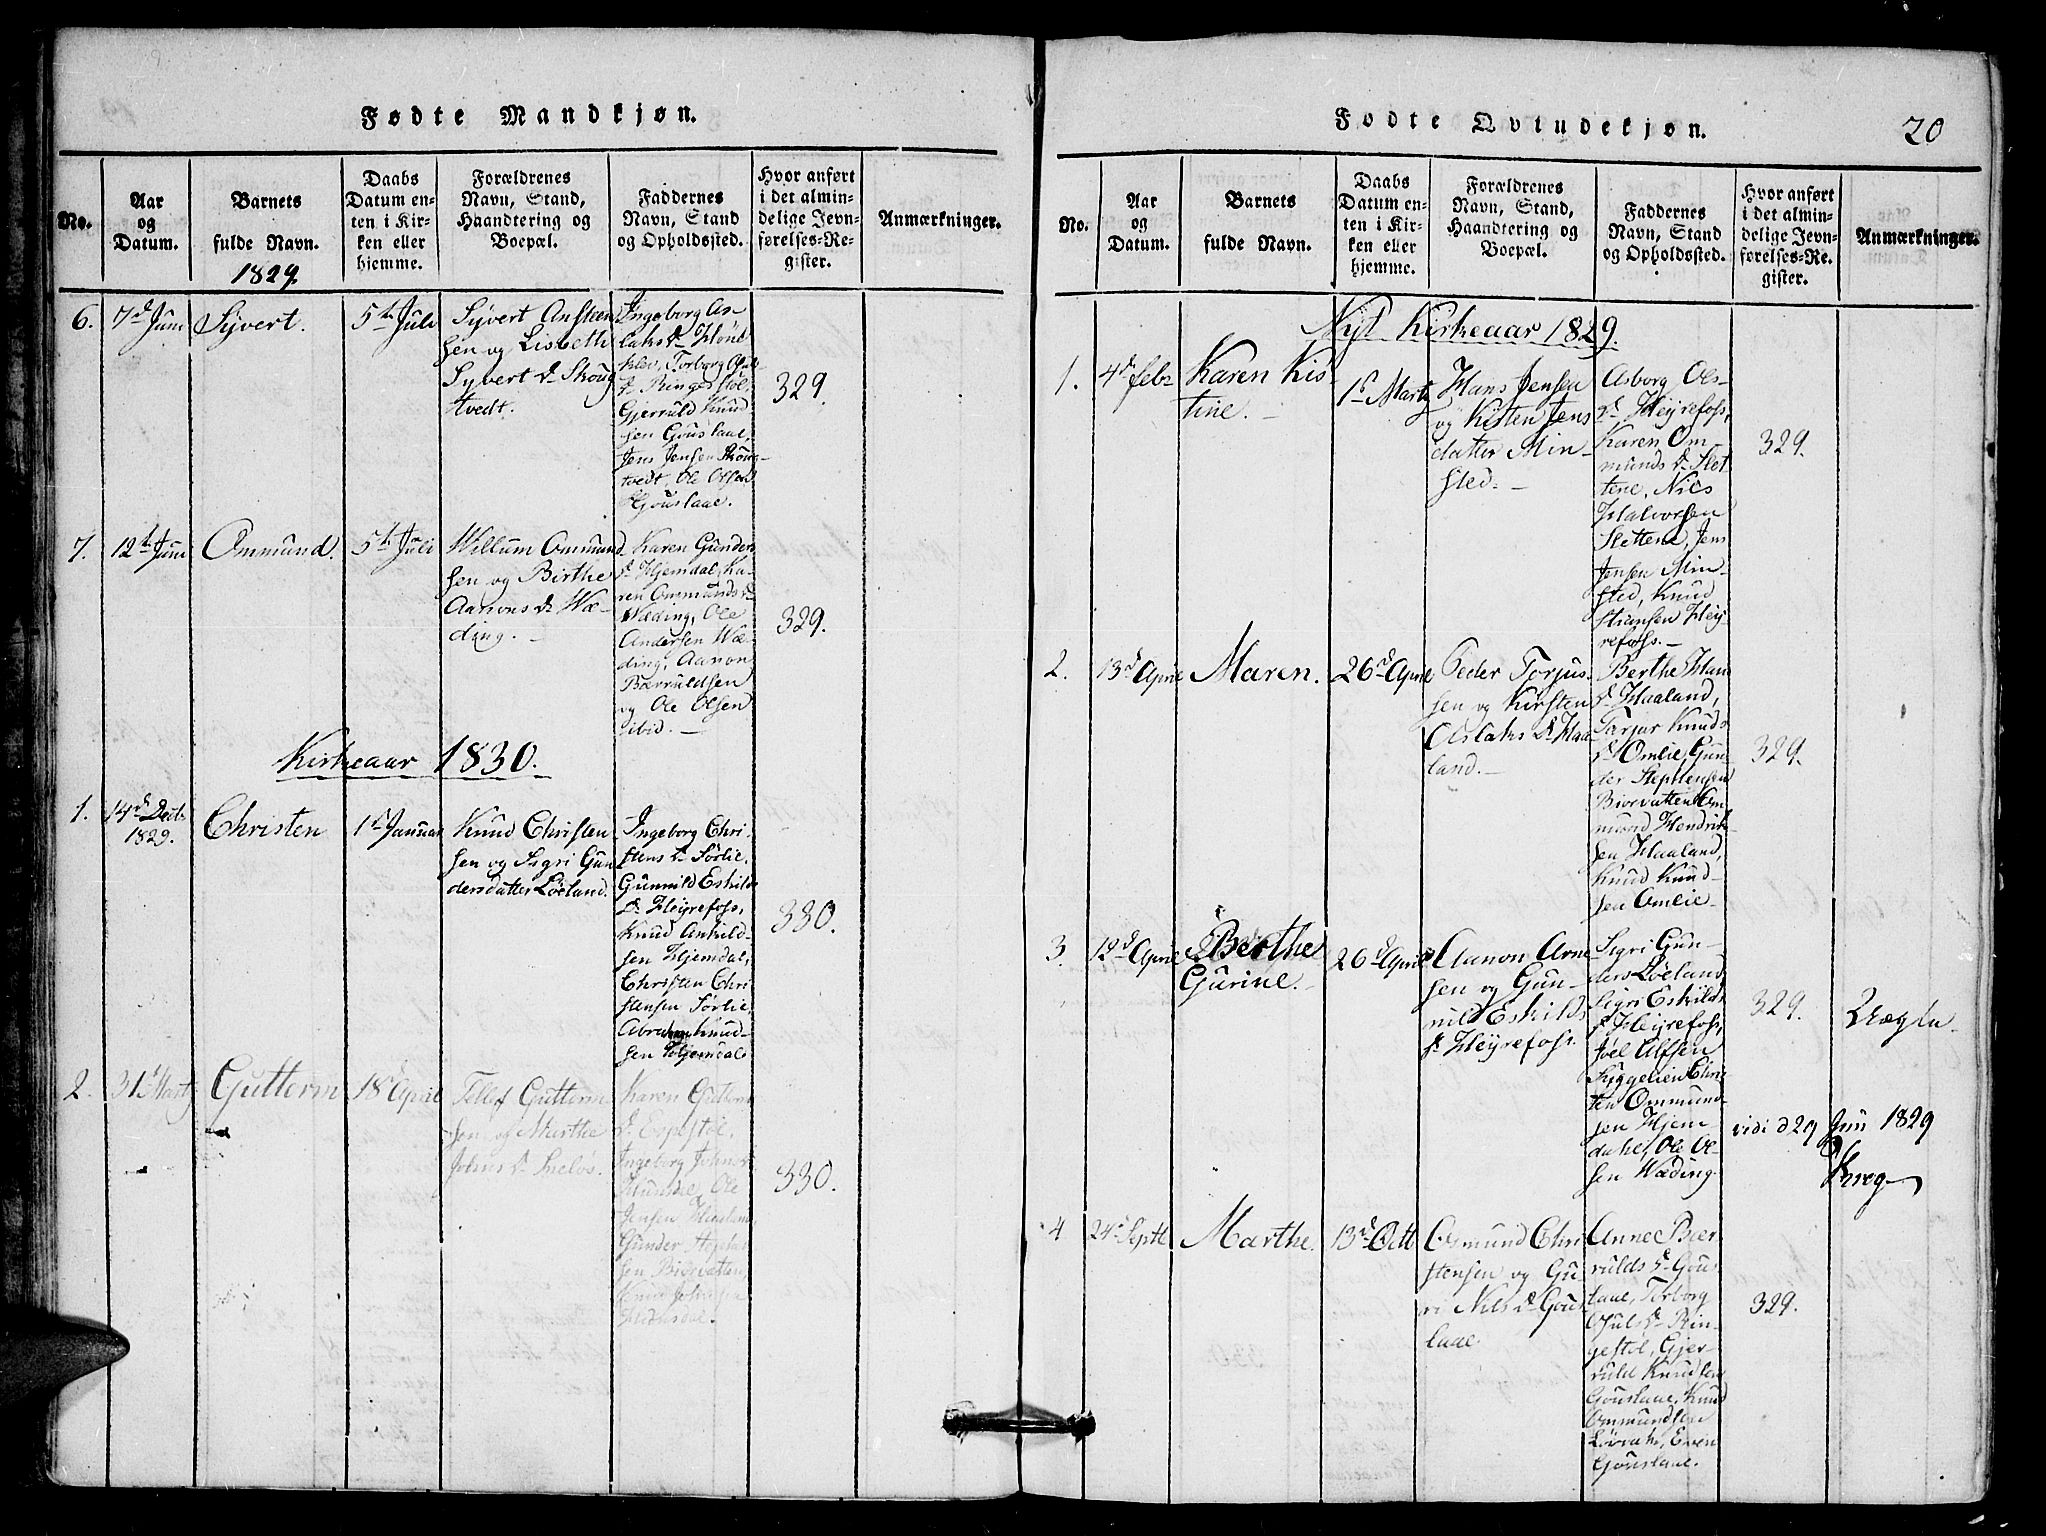 Fødte Mandkjøn.
No.
Aar
og
Datum.
Barnets
fulde Navn.
1829.
Daabs
Datum en-
ten i Kir-
ken eller
hjemme.
Forældrenes
Navn, Stand,
Haandtering og
Boepæl.
Faddernes
Navn, Stand
og Opholdssted.
Hvor anført
i det almin-
delige Jevn-
førelses-Re-
gister.
Anmærkninger.
6.
7d Juni
Syvert.
5th Juli
Syvert Ansteen
sen og Lisbeth
Syvert D. Skoug
tvedt.
Ingeborg As-
laks D.
Torborg
Ringestøl
Gjerruld Knud
sen Gouslaae,
Jens Jensen Skoug-
tvedt, Ole Olsen
Gouslaae.
329.
7.
12th Juni
Ommund.
5th Juli
Willum Ommund
sen og Birthe
Aanons D. Wæ-
ding.
Karen Gunders
D. Hjemdal, Ka-
ren Ommunds D.
Wæding, Ole
Andersen Wæ-
ding, Aanon
Bærruldsen
og Ole Olsen
ibid.
329.
Kirkeaar 1830.
1.
14d Decb.
1829.
Christen
1d Januar
Knud Christen
sen og Sigri Gun
dersdatter Løeland.
Ingeborg Chri-
stens D. Sørlie,
Gunnild Eskilds
D. Høyrefoss,
Knud Askild-
sen Hjemdal,
Christen Chri
stensen Sørlie,
Abraham Knud-
sen Hjemdal
330.
2.
31d Marts
Gutterm
18d April
Tellef Gutterm
sen og Marthe
Johns D.
Karen Gutterm
D.
Ingeborg
Ole
Jensen
Gunder
sen Bivevatten,
330.
Fødte Qvindekjøn.
20
No.
Aar
og
Datum.
Barnets
fulde Navn.
Daabs
Datum en-
ten i Kir-
ken eller
hjemme.
Forældrenes
Navn, Stand,
Haandtering og
Boepæl.
Faddernes
Navn, Stand
og Opholdssted.
Hvor anført
i det almin-
delige Jevn-
førelses-Re-
gister.
Anmærkninger.
Nyt Kirkeaar 1829.
1.
4d Febr
Karen Kis-
tine.
1d Marts
Hans Jensen
og Kisten Jens
datter Min-
sted.
Asborg Ols-
D. Høyrefoss,
Karen Om-
munds D. Slet
tene, Niels
Halvorsen
Slettene, Jens
Jensen Min-
sted, Knud
Stiansen Høy
refoss.
329.
2.
13d April
Maren.
26d April
Peder Torjus-
sen og Kirsten
Aslaks D. Haa-
land.
Berthe
D. Haaland,
Tarjur Knuds
D. Omlie, Gun-
der Stephensen
Bivevatten, Om-
mund Hendrik-
sen Haaland,
Knud Knud-
sen Omlie
329.
3.
12d April
Berthe
Gurine.
26d April
Aanon Arne
sen og Gun-
nild Eskilds
D. Høyrefoss
Sigri Gun-
ders Løeland,
Sigri Eskilds
D. Høyrefoss,
Joel Alfsen
Chris
ten Ommund-
sen Hjem-
dahl, Ole Ol-
sen Wæding.
329.
Uægte.
vidi d 29 Juni 1829
Krog
4
24d Septb
Marthe.
13d Octb
Osmund Chri
stensen og Gu
ri Nils D. Gous
laae
Anne Bær
rulds D. Gous
laae, Torborg
D. Rin-
gestøl, Gjer-
ruld Knudsen
Gouslaae, Knud
Ommundsen
Even
Gouslaae.
329.